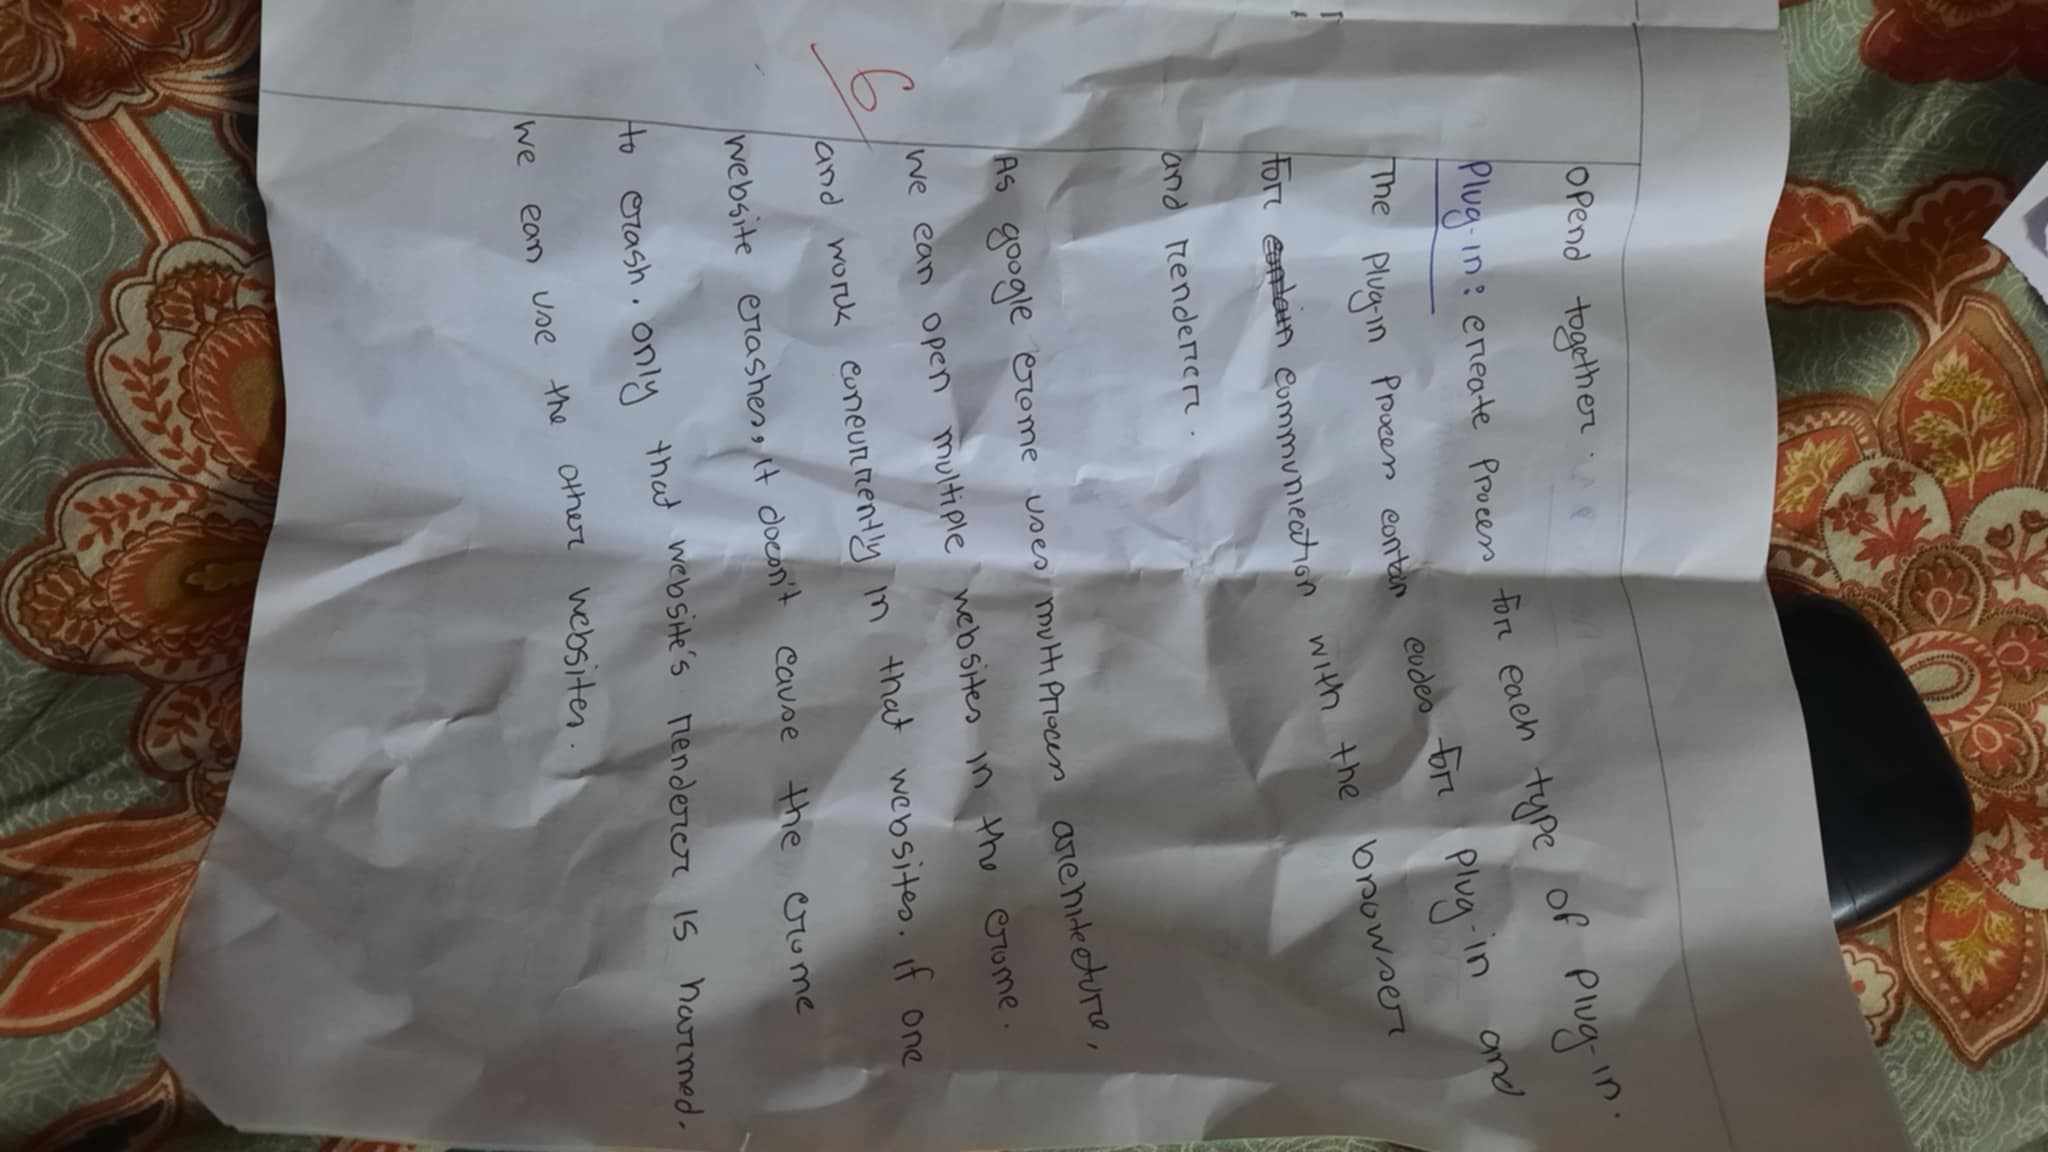 opend together.
Plug-in: create process for each type of plug-in.
The plug-in process contain codes for plug-in and
for contain communication with the browser
and renderer.
As google crome uses multiprocess architecture,
we can open multiple websites in the crome.
and work concurrently in that websites. if one
6
website crashes, it doesn't cause the crome
to crash. only that website's renderer is harmed.
we can use the other websites.